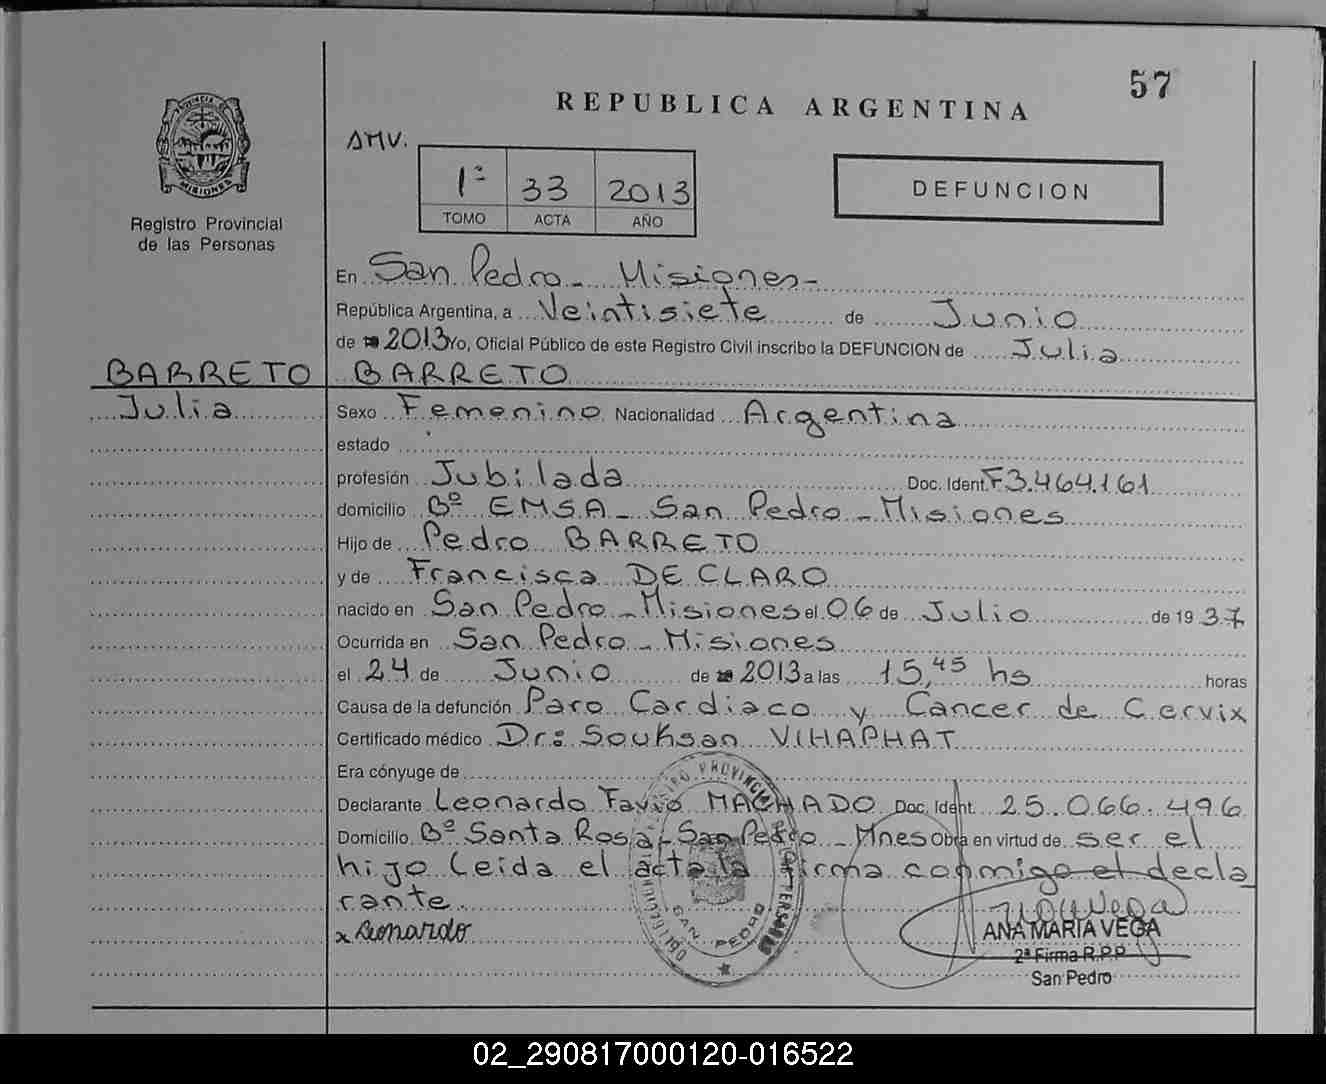 57
REPUBLICA ARGENTINA
AMV.
1ª 33 2013
TOMO ACTA AÑO
DEFUNCION
PROVINCIA DE MISIONES
Registro Provincial
de las Personas
En San Pedro - Misiones -
República Argentina, a Veintisiete de Junio
de 2013 Yo, Oficial Público de este Registro Civil inscribo la DEFUNCION de Julia
BARRETO BARRETO
Julia Sexo Femenino Nacionalidad Argentina
estado
profesión Jubilada Doc. Ident. F3.464.161
domicilio Bº EMSA - San Pedro - Misiones
Hijo de Pedro BARRETO
y de Francisca DE CLARO
nacido en San Pedro - Misiones el 06 de Julio de 1937
Ocurrida en San Pedro - Misiones
el 24 de Junio de 2013 a las 15,45 hs horas
Causa de la defunción Paro Cardiaco y Cancer de Cervix
Certificado médico Dr: Souksan VIHAPHAT
Era cónyuge de
Declarante Leonardo Favio MACHADO Doc. Ident. 25.066.496
Domicilio Bº Santa Rosa - San Pedro - Mnes Obra en virtud de ser el
hijo Leida el acta la firma conmigo el decla
rante.
x Leonardo
SAN PEDRO
ANA MARIA VEGA
2ª Firma R.P.P.
San Pedro
02_290817000120-016522